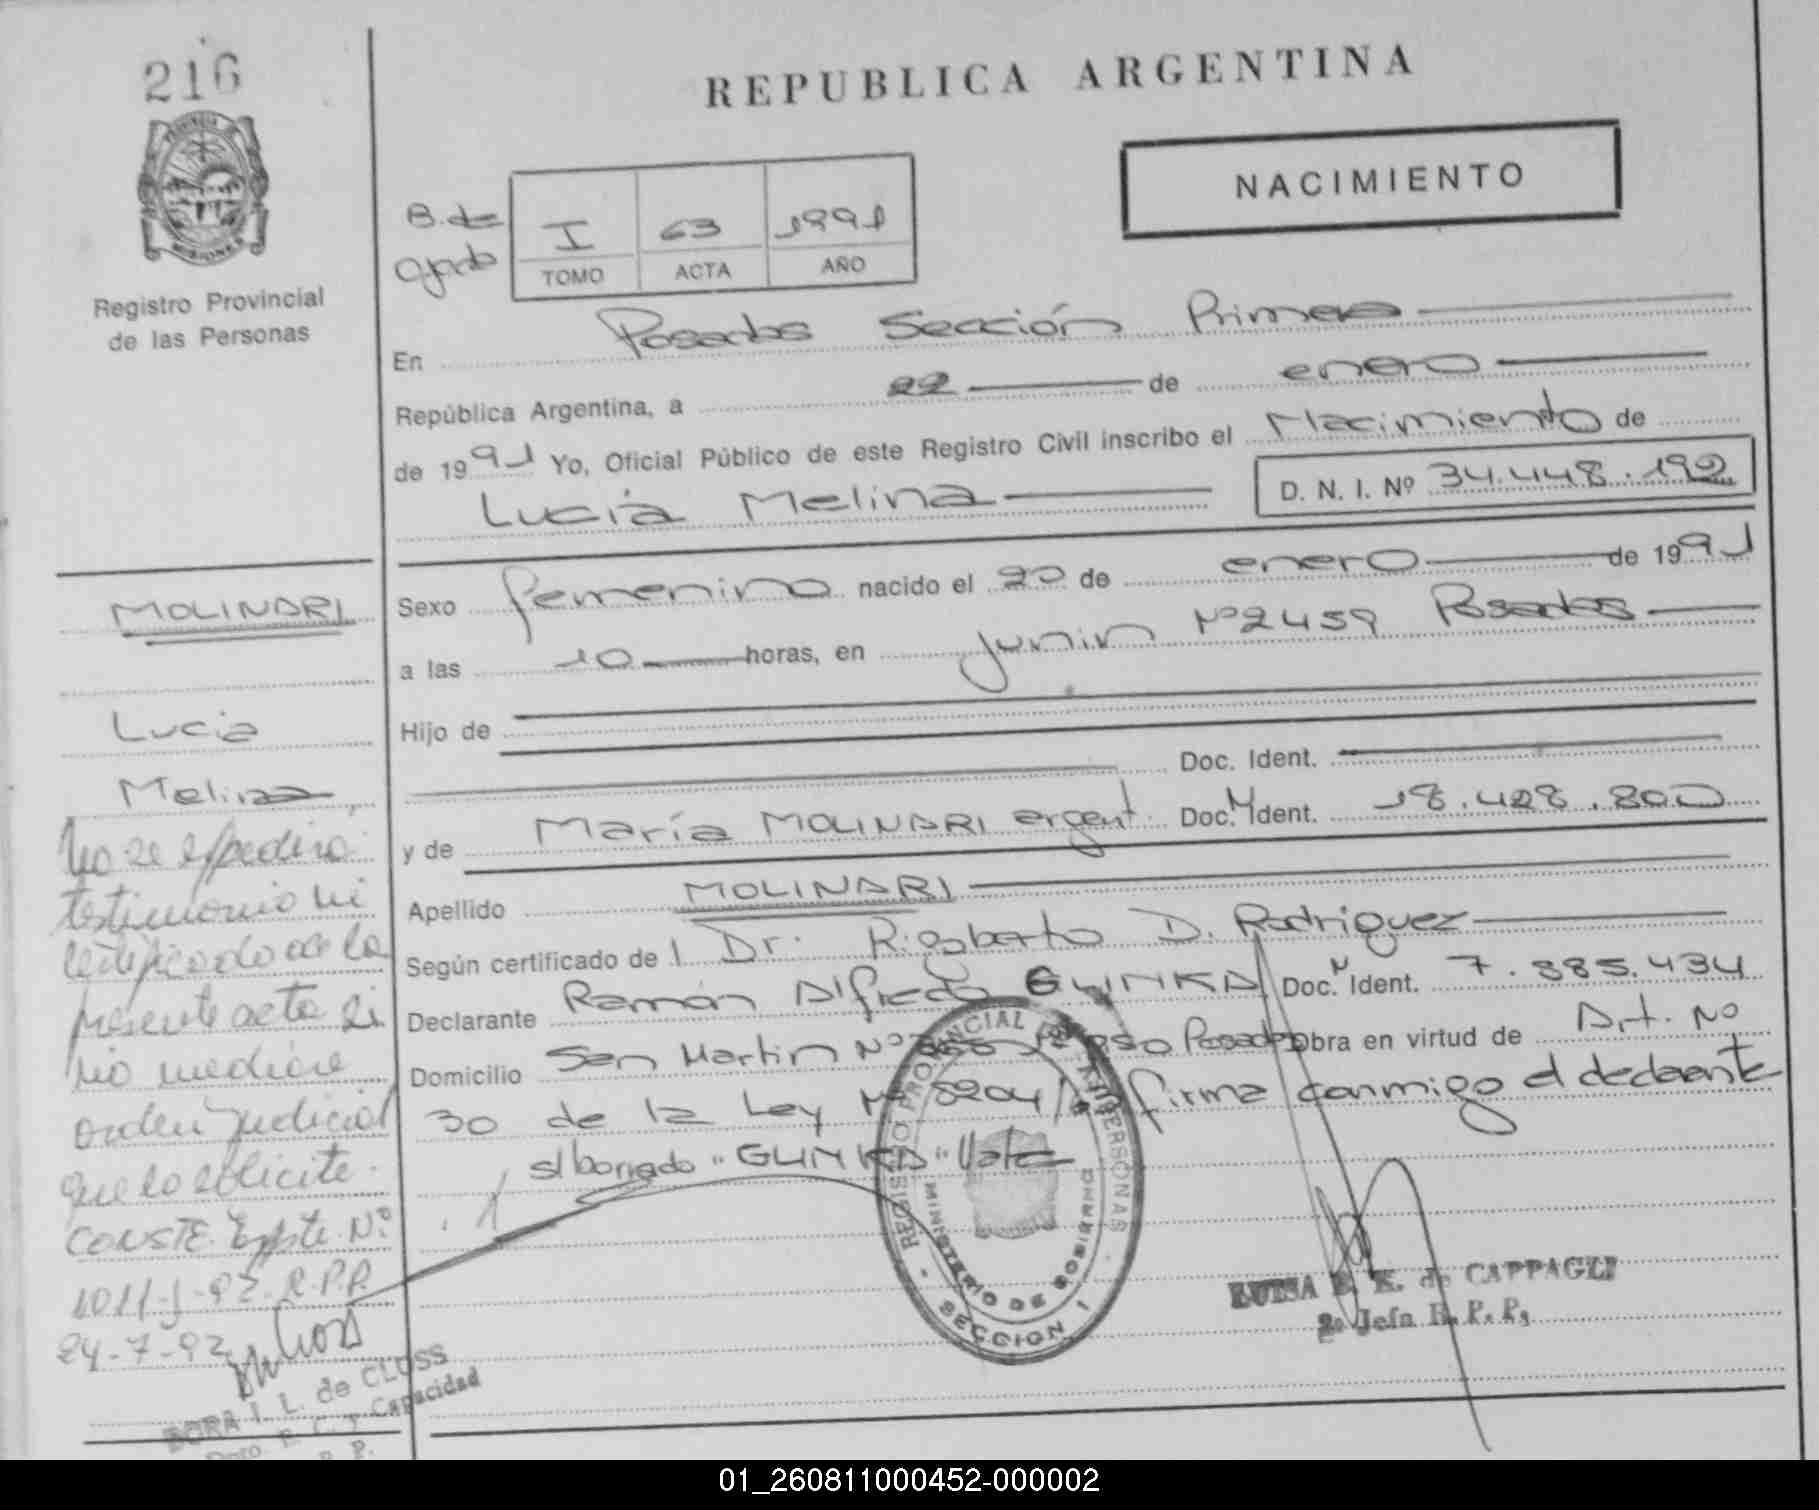 216
REPUBLICA ARGENTINA
NACIMIENTO
B. de
I 63 1991
TOMO ACTA AÑO
Registro Provincial
de las Personas
En Posadas Sección Primera
República Argentina, a 22 de enero
de 1991 Yo, Oficial Público de este Registro Civil inscribo el Nacimiento de
Lucia Melina D. N. I. Nº 34.448.192
Sexo femenino nacido el 20 de enero de 1991
a las 10 horas, en Junin Nº 2459 Posadas
Hijo de
Doc. Ident.
y de María MOLINARI argent. Doc. Ident. 18.428.800
Apellido MOLINARI
Según certificado de Dr. Rigoberto D. Rodriguez
Declarante Ramón Alfredo GUNKA Doc. Ident. 7.885.434
Domicilio San Martin Nº Posadas Obra en virtud de Art. Nº
30 de la Ley Nº 8204/ firma conmigo el declarante
s/borrado "GUNKA" Vale
MOLINARI
Lucia
Melina
No se expedirá
testimonio ni
certificado de la
presente acta si
no mediare
orden judicial
que lo solicite.
CONSTE. Expte. Nº
1011-J-92-R.P.P.
24-7-92
DORA I. L. de CLOSS
Dpto. E. C. y Capacidad
R. P.
REGISTRO PROVINCIAL DE LAS PERSONAS
MINISTERIO DE GOBIERNO
SECCION 1
LUISA E. K. de CAPPAGLI
2º Jefa R. P. P.
01_260811000452-000002